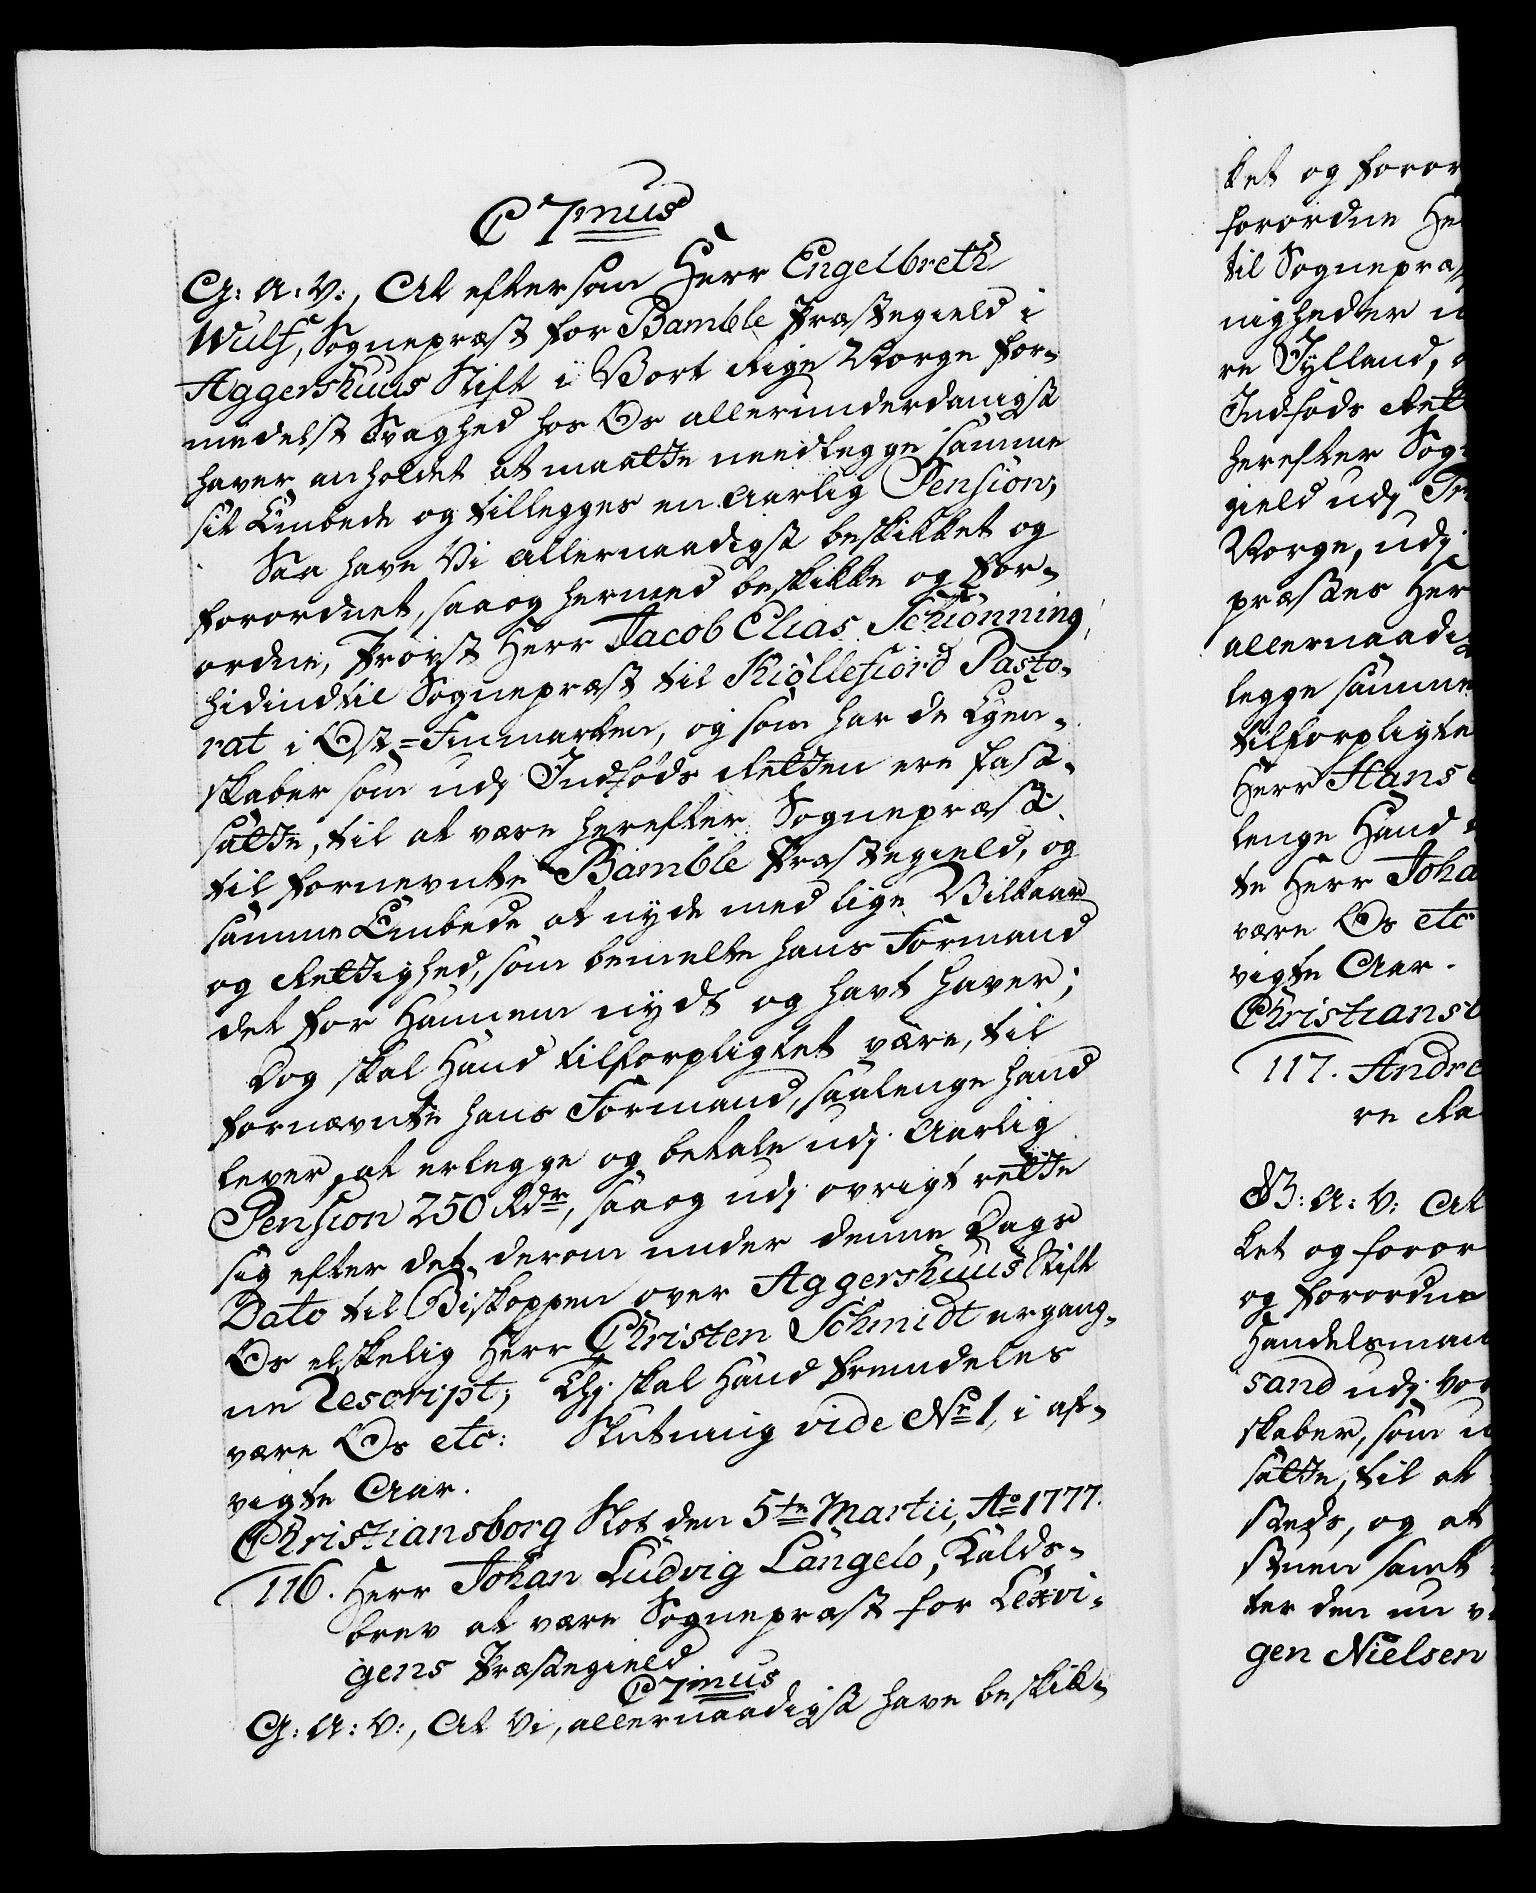 C 7mus
G: A: V:, At eftersom Herr Engelbreth
Wulf, Sognepræst for Bamble Præstegield i
Aggershuus Stift i Vort Rige Norge for-
medelst Svaghed hos Os allerunderdanigst
haver anholdet at maatte needlegge samme
sit Embede og tillegges en Aarlig Pension,
Saa have Vi allernaadigst beskikket og
forordnet, saaog hermed beskikke og for-
ordne, Provst Herr Jacob Elias Schiönning,
hidindtil Sognepræst til Kiöllefiord Pasto-
rat i Ost-Finmarken, og som har de Egen-
skaber som udj Indföds Retten ere fast-
satte, til at være herefter Sognepræst
til fornevnte Bamble Præstegield, og
samme Embede at nyde med lige Vilkaar
og Rettighed, som bemelte hans Formand
det for Hannem nydt og havt haver;
Dog skal Hand tilforpligtet være, til
fornævnte hans Formand, saalenge hand
lever, at erlegge og betale udj Aarlig
Pension 250 Rdr, saaog udj övrigt rette
sig efter det, derom under denne Dags
Dato til Biskoppen over Aggershuus Stift
Os elskelig Herr Christen Schmidt ergang-
ne Rescript; Thj skal Hand fremdeles
være Os etc: Slutning vide No 1, i af-
vigte Aar.
Christiansborg Slot den 5te Martii, Ao 1777.
116. Herr Johan Ludvig Langelo, Kalds-
brev at være Sognepræst for Lexvi-
gens Præstegield
C 7mus
G: A: V:, At Vi, allernaadigst have beskik-
ket og foror
forordne He
til Sognepræs
nigheder u
re Jylland, o
Indföds Rett
herefter Sog
gield udj Tr
Norge, udj
præstes Her
allernaadi
legge samme
tilforpligte
Herr Hans
lenge Hand
te Herr Joha
være Os etc
vigte Aar.
Christiansb
117. Andre
re Ra
G: A: V: At
ket og foror
og forordne
Handelsman
sand udj Vor
skaber, som u
satte, til at
steds, og at
stuen samt
ter den nu v
gen Nielsen